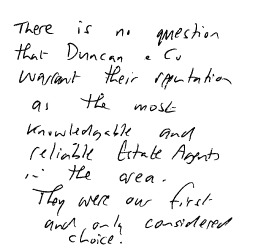 There is no question
that Duncan & Co
warrant their reputation
as the most
knowledgable and
reliable Estate Agents
in the area.
They were our first
and only considered
choice.